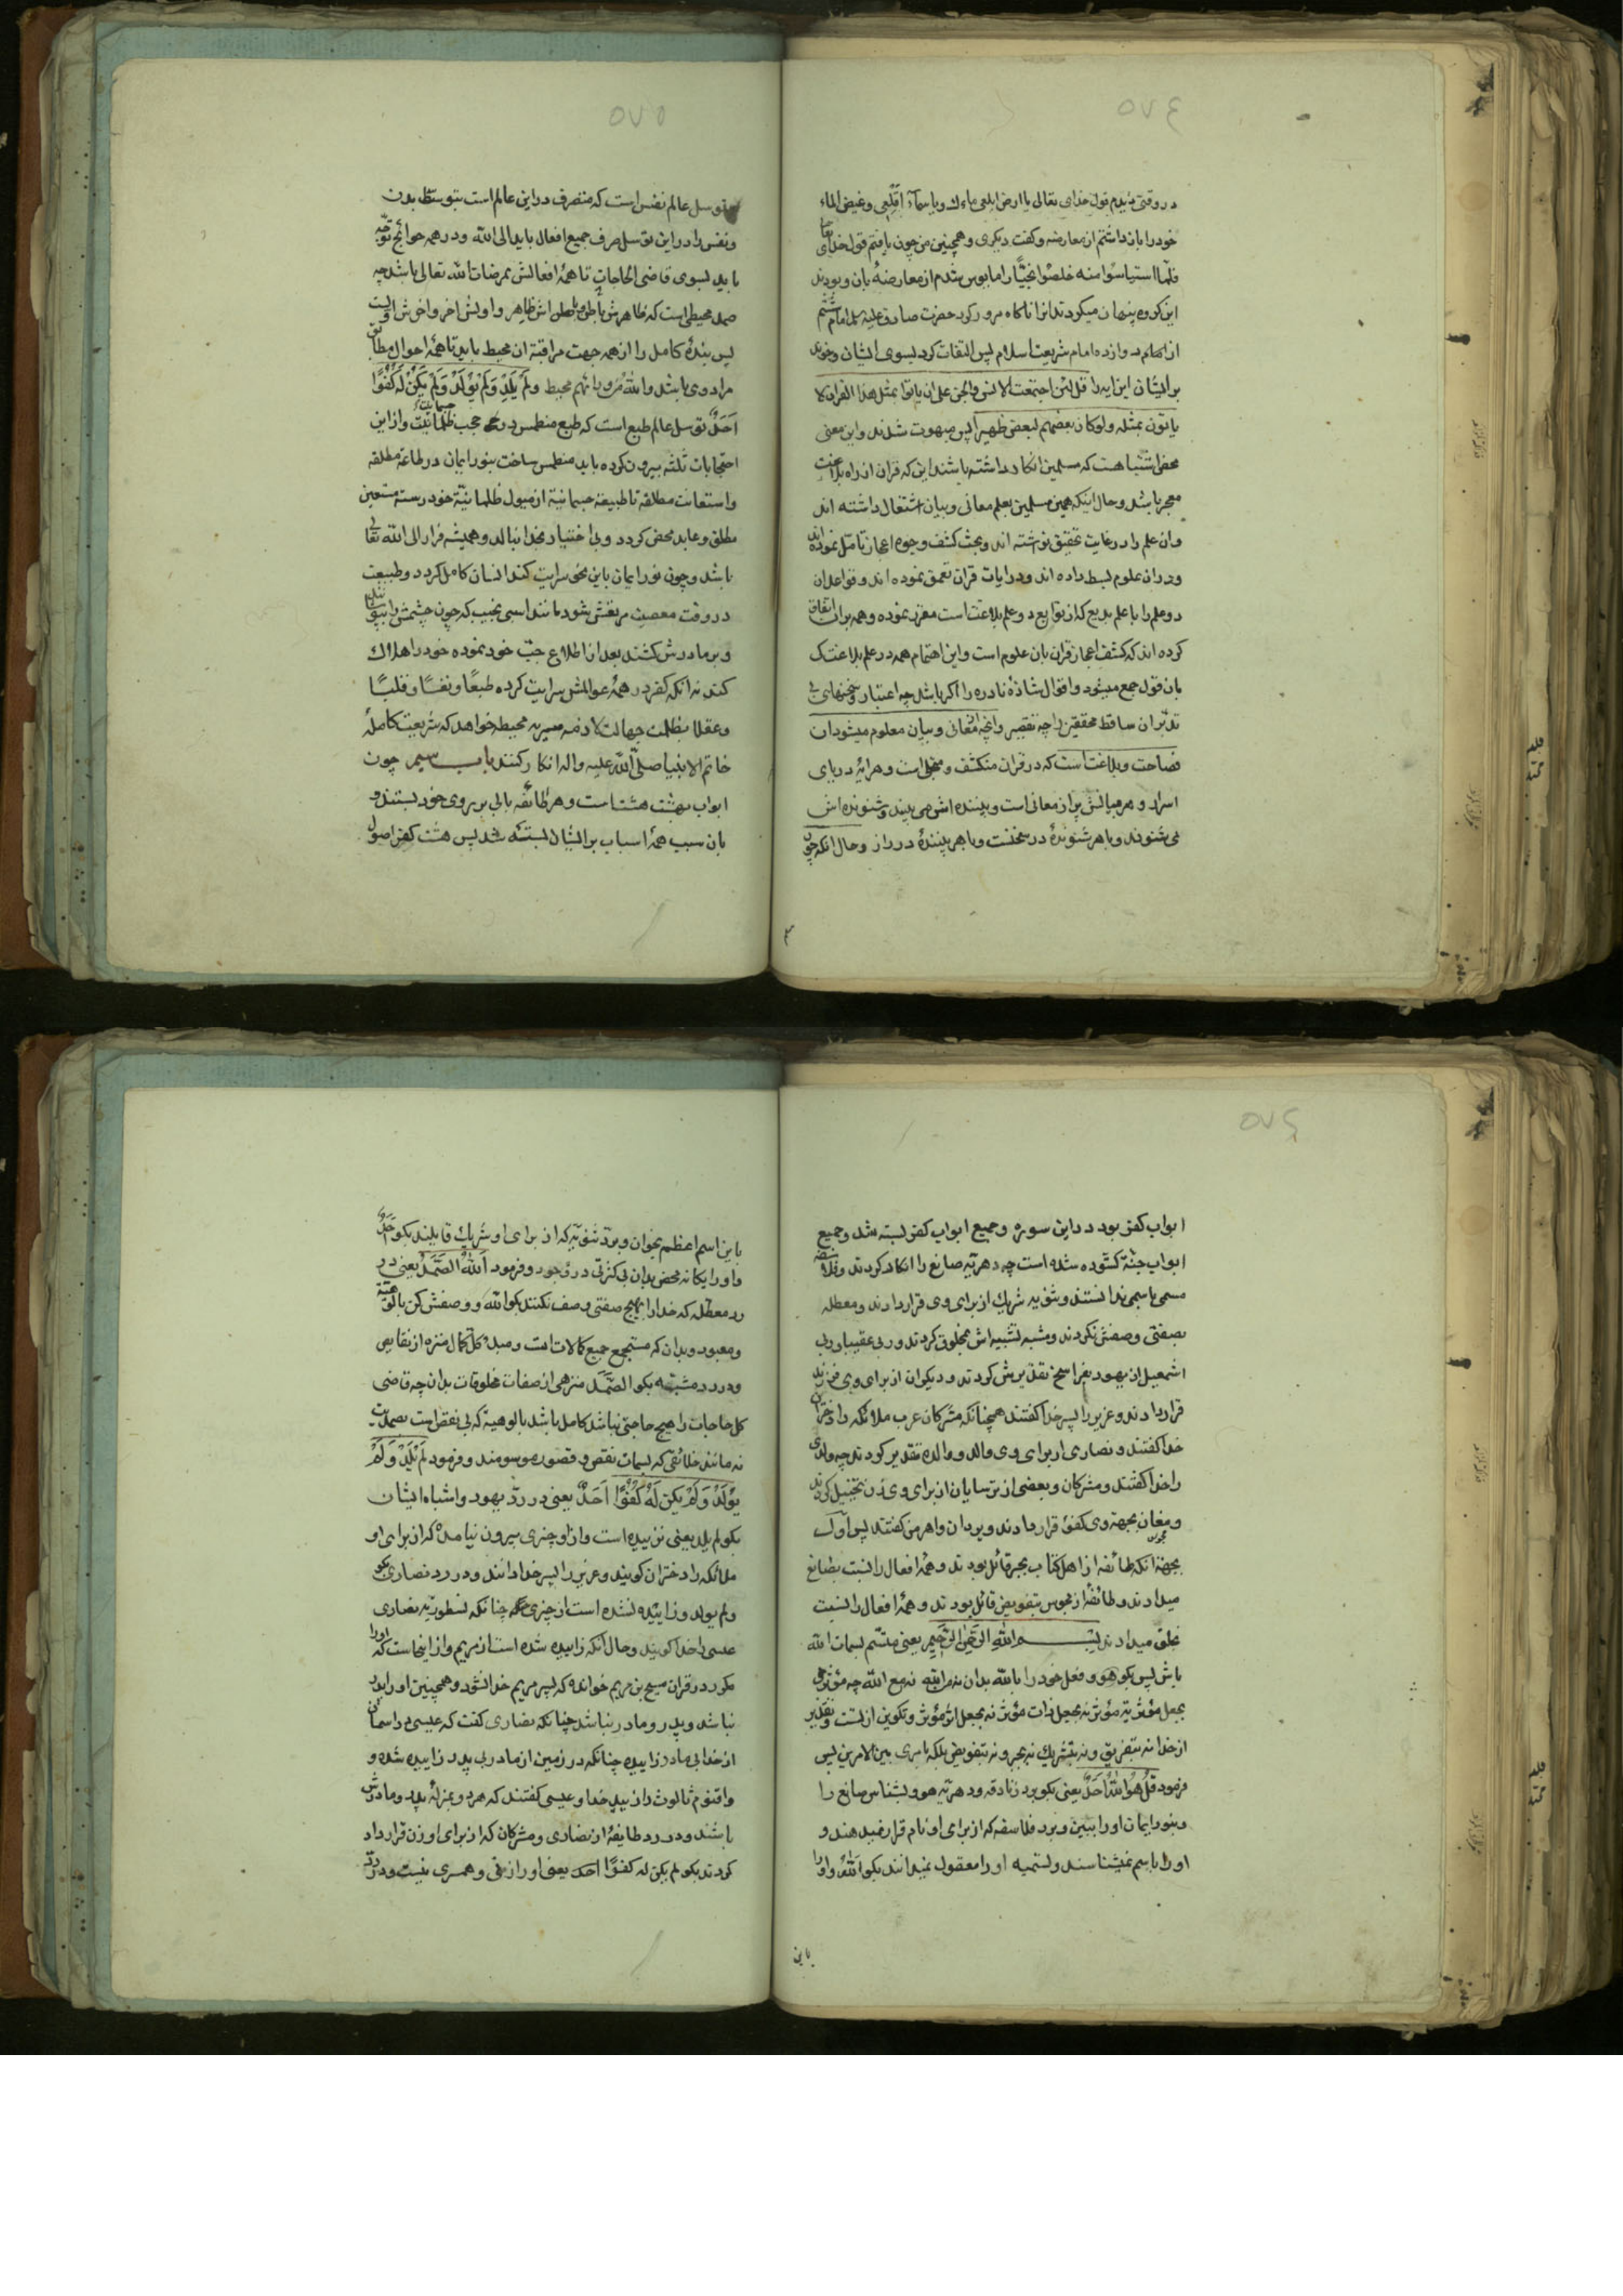 ۵۷۴
در وقتی دیدم قول خدای تعالی یا ارض ابلعی ماءك ویا سمآء اقلعی وغیض الماء
خود را باز داشتم از معارضه وکفت دیکری وهمچنین من چون یافتم قول خدای تعالی
فلمّا استیاسوا منه خلصوا نجیّا را مایوس شدم از معارضهٔ بان وبودند
این کروه پنهان میکردند انرا ناکاه مرور کرد حضرت صادق علیه السلام امام ششم
از امام دوازده امام شریعت اسلام پس التفات کرد بسوی ایشان وخواند
بر ایشان این ایه را قل لئن اجتمعت الانس والجن علی ان یاتوا بمثل هذا القران لا
یاتون بمثله ولو کان بعضهم لبعض ظهیرا پس مبهوت شدند واین معنی
محض اشتباهست که مسلمین انکار داشته باشند این که قران از راه بلاغت
معجز باشد وحال اینکه همین مسلمین بعلم معانی وبیان اشتغال داشته اند
وان علم را در غایت تحقیق نوشته اند وبحث کشف وجوه اعجاز تامّل نموده اند
ودران علوم بسط داده اند ودر ایات قران تعمق نموده اند وقواعد ان
دو علم را با علم بدیع که از توابع دو علم بلاغت است مقرر نموده وهمه بران اتفاق
کرده اند که کشف اعجاز قران بان علوم است واین اهتمام همه در علم بلاغت ک
بان قول جمع میشود واقوال شاذهٔ نادره را اکر باشد چه اعتبار وسخنهای بی
تدبّران ساقط محققین را چه تقصیر وانچه از معانی وبیان معلوم میشود ان
فصاحت وبلاغت است که در قران منکشف ومنجلی است وهر ایهٔ دریای
اسرار وهر مبانیش پر از معانی است وبیننده اش می بیند وشنونده اش
می شنوند وبا هر شنوندهٔ در سخنست وبا هر بینندهٔ در راز وحال انکه چون
۵۷۵
توسل عالم نفس است که متصرف در این عالم است بتوسط بدن
ونفس را در این توسل صرف جمیع افعال باید الی الله ودر همه حوائج توجّه
باید بسوی قاضی الحاجات تا همهٔ افعالش بمرضات الله تعالی باشد چه
صمد محیطی است که ظاهرش باطن وباطن اش ظاهر واولش اخر واخرش اولست
پس بندهٔ کامل را از همه جهت مراقبهٔ ان محیط باید تا همهٔ احوال مطابق
مراد وی باشد والله من ورائهم محیط ولم یلد ولم یولد ولم یکن له کفوا
احد توسل عالم طبع است که طبع منطمس در حجب ظلمانیّت جسمانیّت واز این
احتجابات ثلثه بیرون کرده باید منطمس ساخت بنور ایمان در طاعهٔ مطلقه
واستعانت مطلقه تا طبیعهٔ جسمانیهٔ از میول ظلمانیّهٔ خود رسته مستعین
مطلق وعابد محض کردد وبی اختیار بخدا نبالد وهمیشه فرار الی الله تعالی
باشد وچون نور ایمان باین نحو سرایت کند انسان کامل کردد وطبیعت
در وقت معصیت مرتعش شود مانند اسبی نجیب که چون چشمش را بپوشانند
وبر مادرش کشند بعد از اطلاع خود نموده خود را هلاك
کند نه انکه کفر در همهٔ عوالمش سرایت کرده طبعًا ونفسًا وقلبًا
وعقلا بظلمت جهالت محیطه خواهد که شریعت کاملهٔ
خاتم الانبیا صلّی الله علیه واله انکار کنند باب سیم چون
ابواب بهشت هشت است وهر طائفه بابی بر روی خود بستند و
بان سبب همهٔ اسباب بر ایشان بسته شد پس هشت کفر اصول
۵۷۶
ابواب کفر بود در این سوره وجمیع ابواب کفر بسته شد وجمیع
ابواب جنّة کشوده شده است چه دهریّه صانع را انکار کردند وفلاسفه
مسمی باسمی ندانستند وثنویه شریك از برای وی قرار دادند ومعطله
بصفتی وصفش نکردند ومشبه تشبیه اش بمخلوق کردند وربی عقیبا وربی
اشمعیل از یهود بفراسخ تقدیرش کردند ودیکران از برای وی فرزند
قرار دادند وعزیر را پسر خدا کفتند همچنانکه مشرکان عرب ملائکه را دختران
خدا کفتند ونصاری از برای وی والد ووالده تقدیر کردند چه ولدی
را خدا کفتند ومشرکان وبعضی از ترسایان از برای وی زن تخییل کردند
ومغان بجهة وی کفو قرار دادند ویزدان واهرمن کفتند پس اوّلا
بجهة انکه طائفه از اهل کتاب بجبر قائل بودند وهمهٔ افعال را نسبت بصانع
میدادند وطائفهٔ از مجوس بتفویض قائل بودند وهمهٔ افعال را نسبت
بخلق میدادند بسم الله الرّحمن الرّحیم یعنی متسّم بسمات الله
باش پس بکو هو وفعل خود را بالله بدان نه من الله نه مع الله چه مؤثر
بجعل مؤثریّه مؤثر نه بجعل ذات مؤثر نه بجعل اثر مؤثر وتکوین ازلست وتقدیر
از خدا نه بتفریق ونه بتشریك نه بجبر ونه بتفویض بلکه بامری بین الامرین پس
فرمود قل هو الله احد یعنی بکو برد زنادقه ودهریّه هو وبشناس صانع را
وبنور ایمان او را ببین وبرد فلاسفه که از برای او نام قرار نمیدهند و
او را باسم نمیشناسند وتسمیه او را معقول نمیدانند بکو الله واو را
باین
باین اسم اعظم بخوان وبردّ ثنویّه که از برای او شریك قایلند بکو احد
واو را یکانه محض بدان بی کثرتی در وجود وفرمود الله الصّمد یعنی در
رد معطله که خدا را بهیچ صفتی وصف نکنند بکو الله ووصفش کن بالوهیّة
ومعبود وبدان که مستجمع جمیع کمالات است ومبدء کل کمال منزه از نقایص
ودر رد مشبّهه بکو الصّمد منزهی از صفات مخلوقات بدان چه قاضی
کل حاجات را هیچ حاجتی نباشد کامل باشد بالوهیة که بی نقص است بصمدیّت
نه مانند خلائقی که بسمات نقص وقصور موسومند وفرمود لم یلد ولم
یولد ولم یکن له کفوا احد یعنی در ردّ یهود واشباه ایشان
بکو لم یلد یعنی نزییده است واز او چیزی بیرون نیامده که از برای او
ملائکه را دختران کویند وعزیر را پسر خدا دانند ودر رد نصاری بکو
ولم یولد وزاییده نشده است از چیزی چنانکه نسطوریّه نصاری
عیسی را خدا کویند وحال انکه زاییده شده است از مریم واز اینجاست که او را
مکرر در قران مسیح بن مریم خوانده که پسر مریم خدا نشود وهمچنین او را پدر
نباشد وپدر ومادر نباشد چنانکه نصاری کفت که عیسی در اسمان
از خدا بی مادر زاییده چنانکه در زمین از مادر بی پدر زاییده شده و
واقنوم ثالوث را زیید خدا وعیسی کفتند که هر دو بمنزلهٔ پدر ومادرش
باشند ودر رد طایفهٔ از نصاری ومشرکان که از برای او زن قرار داد
کردند بکو لم یکن له کفوًا احد یعنی او را زنی وهمسری نیست ودر ردّ